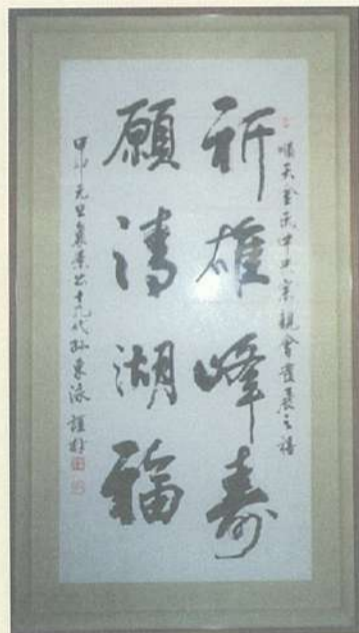 順天金氏中央宗親會發展之禱
祈雄峰壽
願清湖福
甲申元旦襄景公十九代孫東泳謹